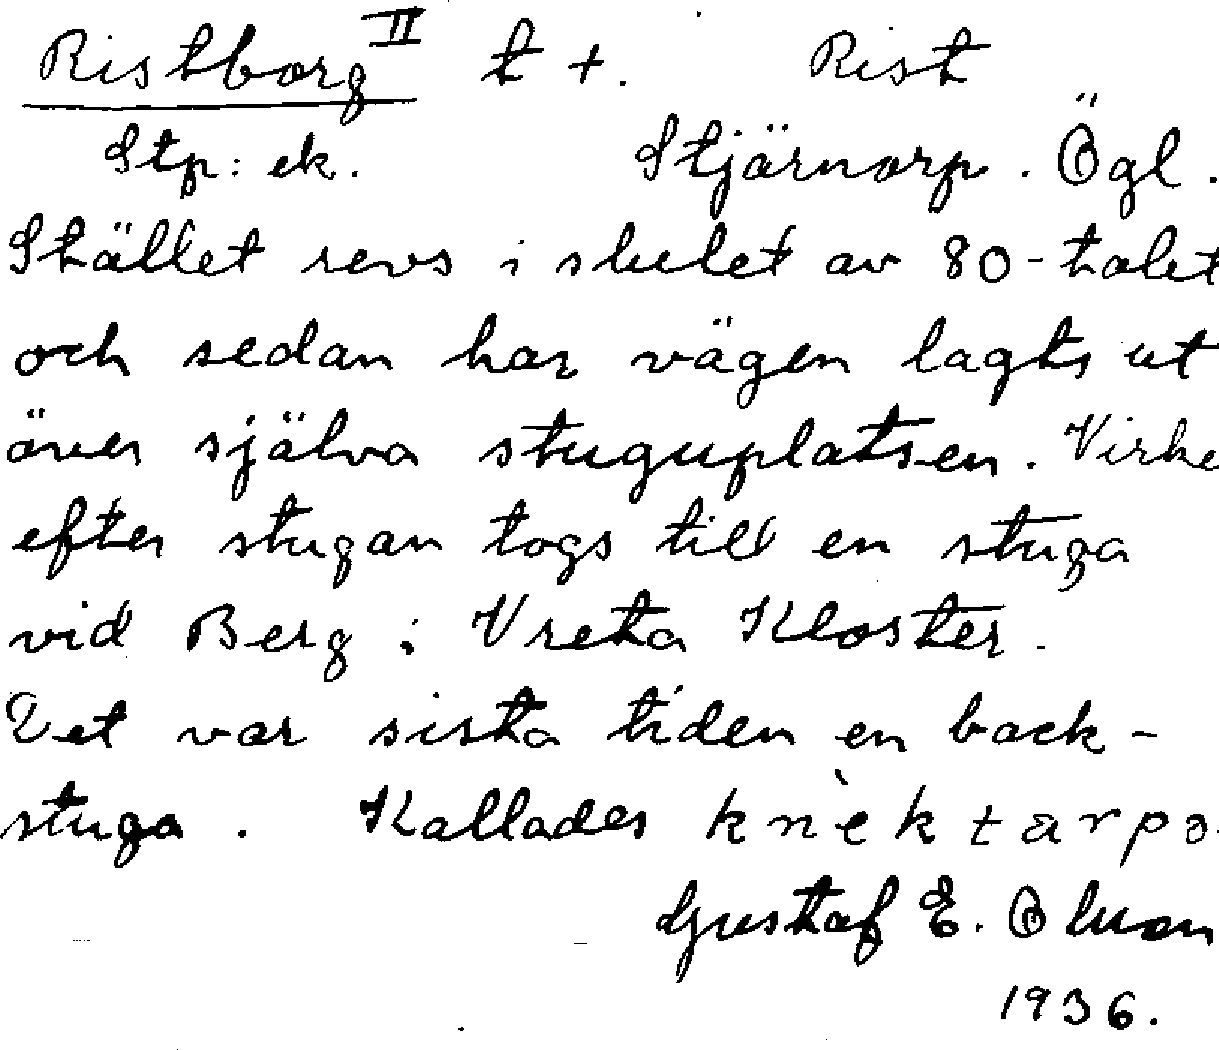 Ristborg II t +. Rist
Stp: ek. Stjärnorp. Ögl.
Stället revs i slutet av 80-talet
och sedan har vägen lagts ut
över själva stuguplatsen. Virke
efter stugan togs till en stuga
vid Berg i Vreta Kloster.
Det var sista tiden en back-
stuga. Kallades
Gustaf E.
1936.